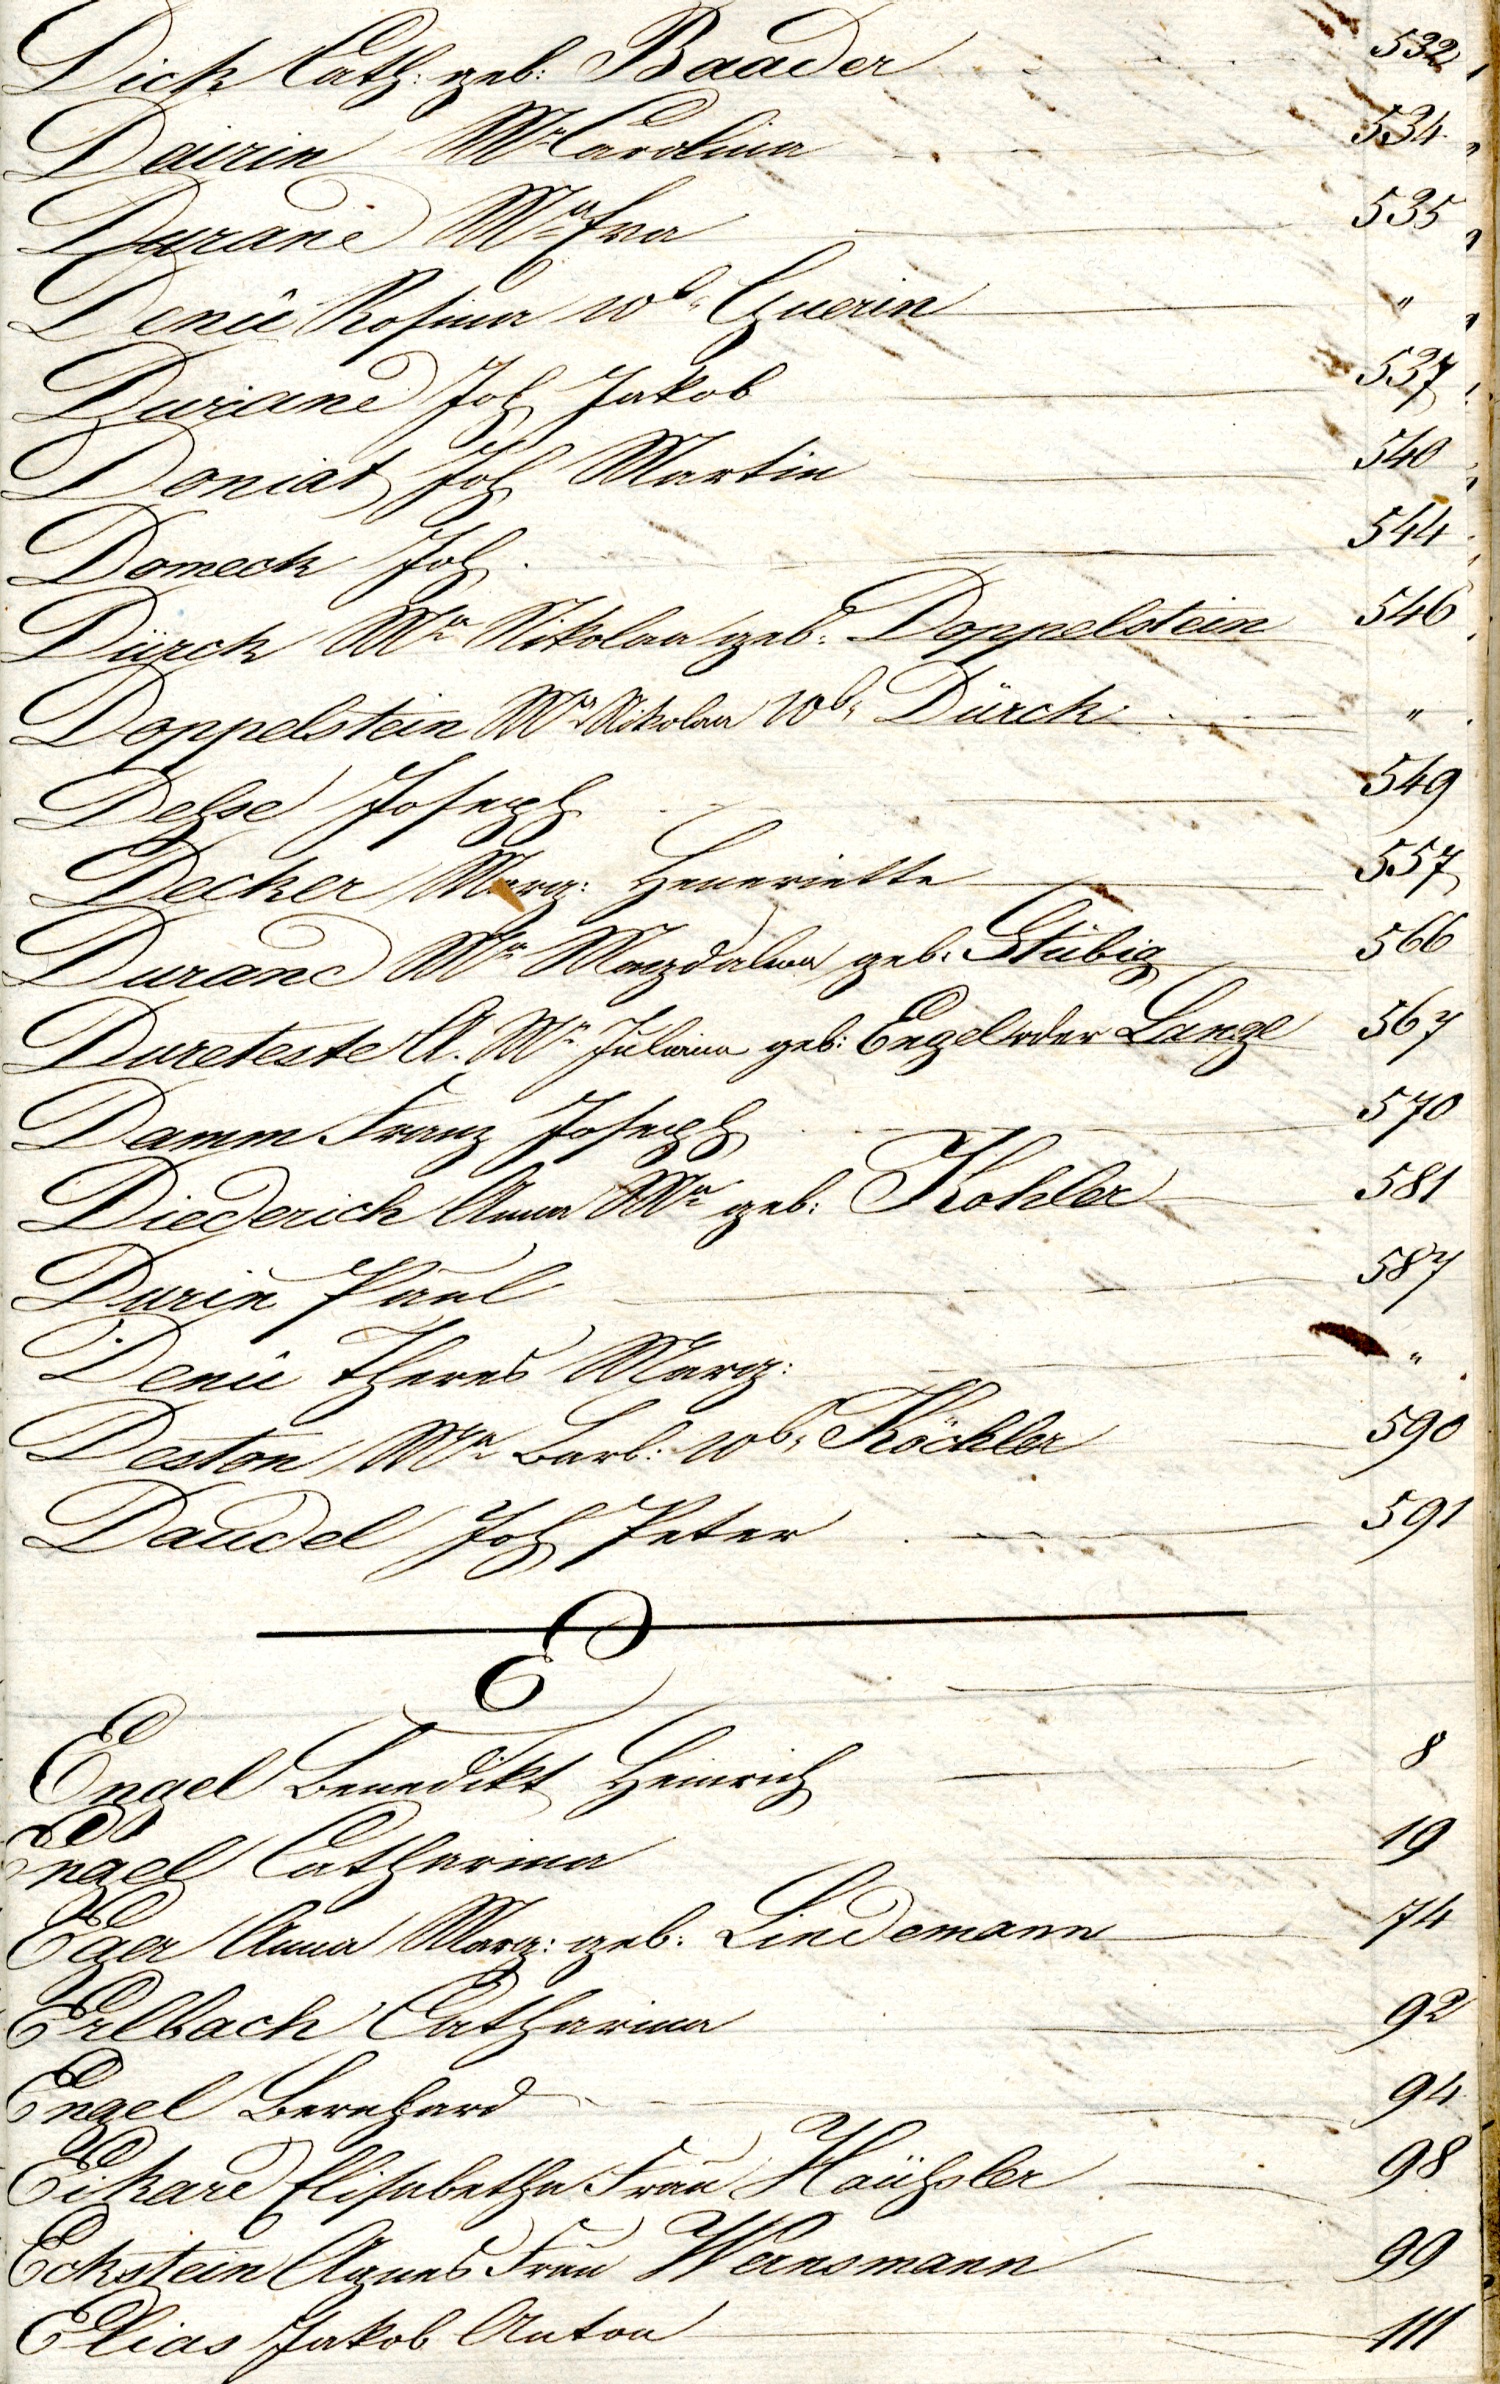 Dick Cath: geb: Baader 532
Dairin Mr Carolina 534
Durand Mr Eva 535
Denü Rosina Wb. Guerin "
Durand Joh Jakob 537
Doniat Joh Martin 540
Domeck Joh. 544
Dürck Mr Nikolaa geb: Doppelstein 546
Doppelstein Mr Nikolaa Wb. Dürck "
Delse Joseph 549
Decker Marg: Henriette 557
Durand Mr Magdalena geb. Stübig 566
Dureteste A. Mr Juliana geb: Engel oder Lange 567
Damm Franz Joseph 570
Diederich Anna Mr geb: Kohler 581
Durin Paul 587
Denü Theres Marg: "
Deston Mr Barb: Wb. Köchler 590
Daudel Joh Peter 591
E
Engel Benedikt Heinrich 8
Engel Catharina 19
Eger Anna Marg: geb. Lindemann 74
Erlbach Catharina 92
Engel Bernhard 94
Eikard Elisabetha Frau Häußler 98
Eckstein Agnes Frau Wernsmann 99
Elias Jakob Anton 111